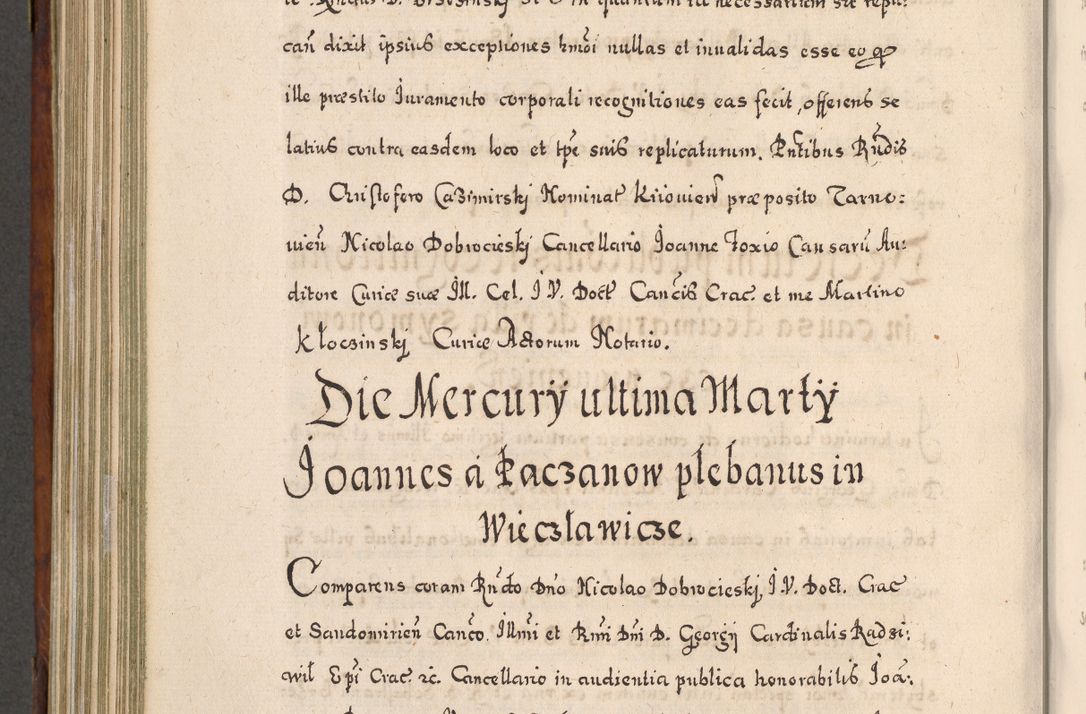 can̄ dixit ipsius exceptiones hmōi nullas et inualidas esse eo qƥ
ille præstito Iuramento corporali recognitiones eas fecit, offerens se
latius contra easdem loco et tp̄e suis replicaturum. Pn̄tibus Rn̄dis
D. Christofero Cazimirskj Nominat Kiiouien̄ præposito Tarno:
uien̄ Nicolao Dobrocieskj Cancellario Joanne Foxio Causarū Au:
ditore Curiæ suæ Ill. Cel. I. V. Doct Can̄cis Crac. et me Martino
Kłoczinskj Curiæ Actorum Notario.
Die Mercurÿ ultima Martÿ
Joannes á Łaczanow plebanus in
Wieczławicze.
Comparens coram Rn̄do Dn̄o Nicolao Dobrocieskj, I. V. Doct. Crac
et Sandomirien̄ Can̄co. Illm̄i et Rm̄i Dn̄i D. Georgij Cardinalis Radzi:
wił Ep̄i Crac. zc̄. Cancellario in audientia publica honorabilis Joā: